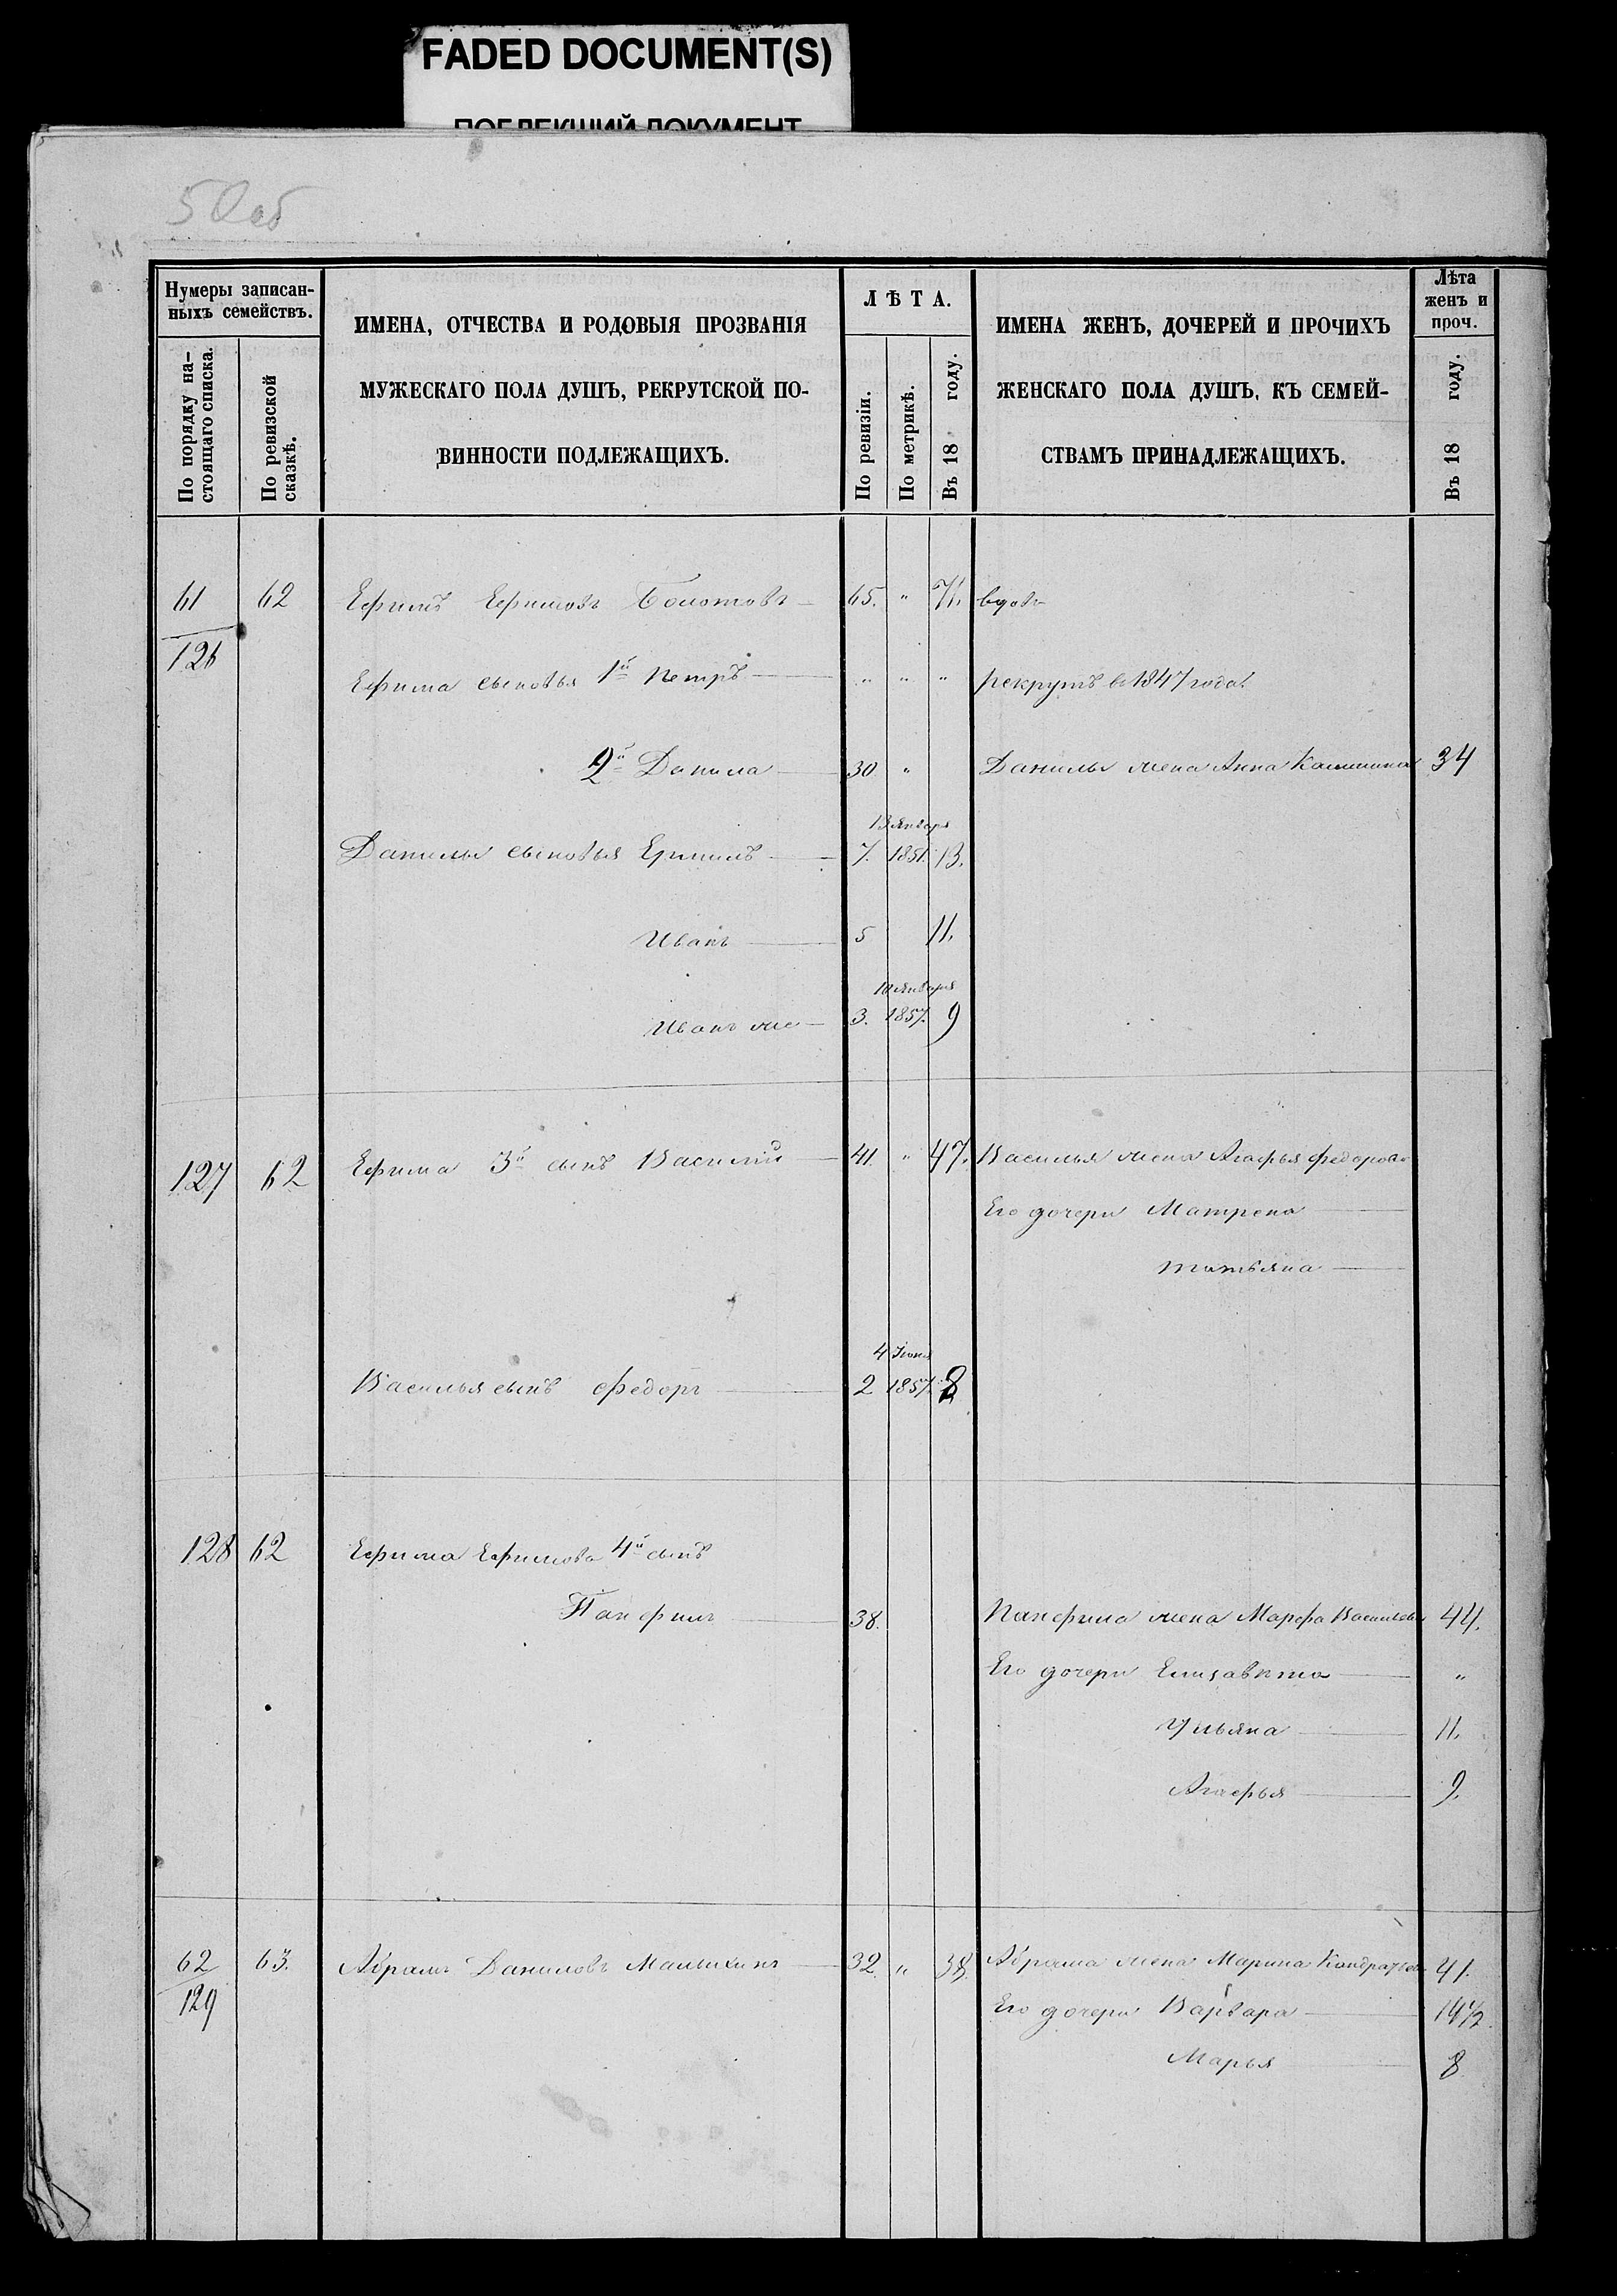 FADED DOCUMENT(S)
ПОБЛЕКШИЙ ДОКУМЕНТ
50об
Нумеры записан-
ныхъ семействъ.
По порядку на-
стоящаго списка.
По ревизской
сказкѣ.
ИМЕНА, ОТЧЕСТВА И РОДОВЫЯ ПРОЗВАНІЯ
МУЖЕСКАГО ПОЛА ДУШЪ, РЕКРУТСКОЙ ПО-
ВИННОСТИ ПОДЛЕЖАЩИХЪ.
ЛѢТА.
По ревизіи.
По метрикѣ.
Въ 18 году.
ИМЕНА ЖЕНЪ, ДОЧЕРЕЙ И ПРОЧИХЪ
ЖЕНСКАГО ПОЛА ДУШЪ, КЪ СЕМЕЙ-
СТВАМЪ ПРИНАДЛЕЖАЩИХЪ.
Лѣта
женъ и
проч.
Въ 18 году.
61 62 Ефимъ Ефимовъ Болотовъ 65. " 71. вдовъ
126
Ефима сыновья 1й Петръ " " " рекрутъ в 1847 года
2й Данила 30 " Данилы жена Анна Калинина 34
13 Января
Данилы сыновья Ермилъ 7. 1851. 13.
Иванъ 5 11.
10 января
Иванъ же 3. 1857. 9
127 62 Ефима 3й сынъ Василий 41. " 47. Василья жена Агафья Федорова
Его дочери Матрена
Татьяна
4 Июня
Василья сынъ Федоръ 2 1857. 8
128 62 Ефима Ефимова 4й сынъ
Панфилъ 38. Панфила жена Марфа Васильева 44.
Его дочери Елизавета "
Ульяна 11.
Агафья 9.
62 63. Абрамъ Даниловъ Малыхинъ 32. " 38. Абрама жена Марина Кондратьева 41.
129
Его дочери Варвара 14½
Марья 8